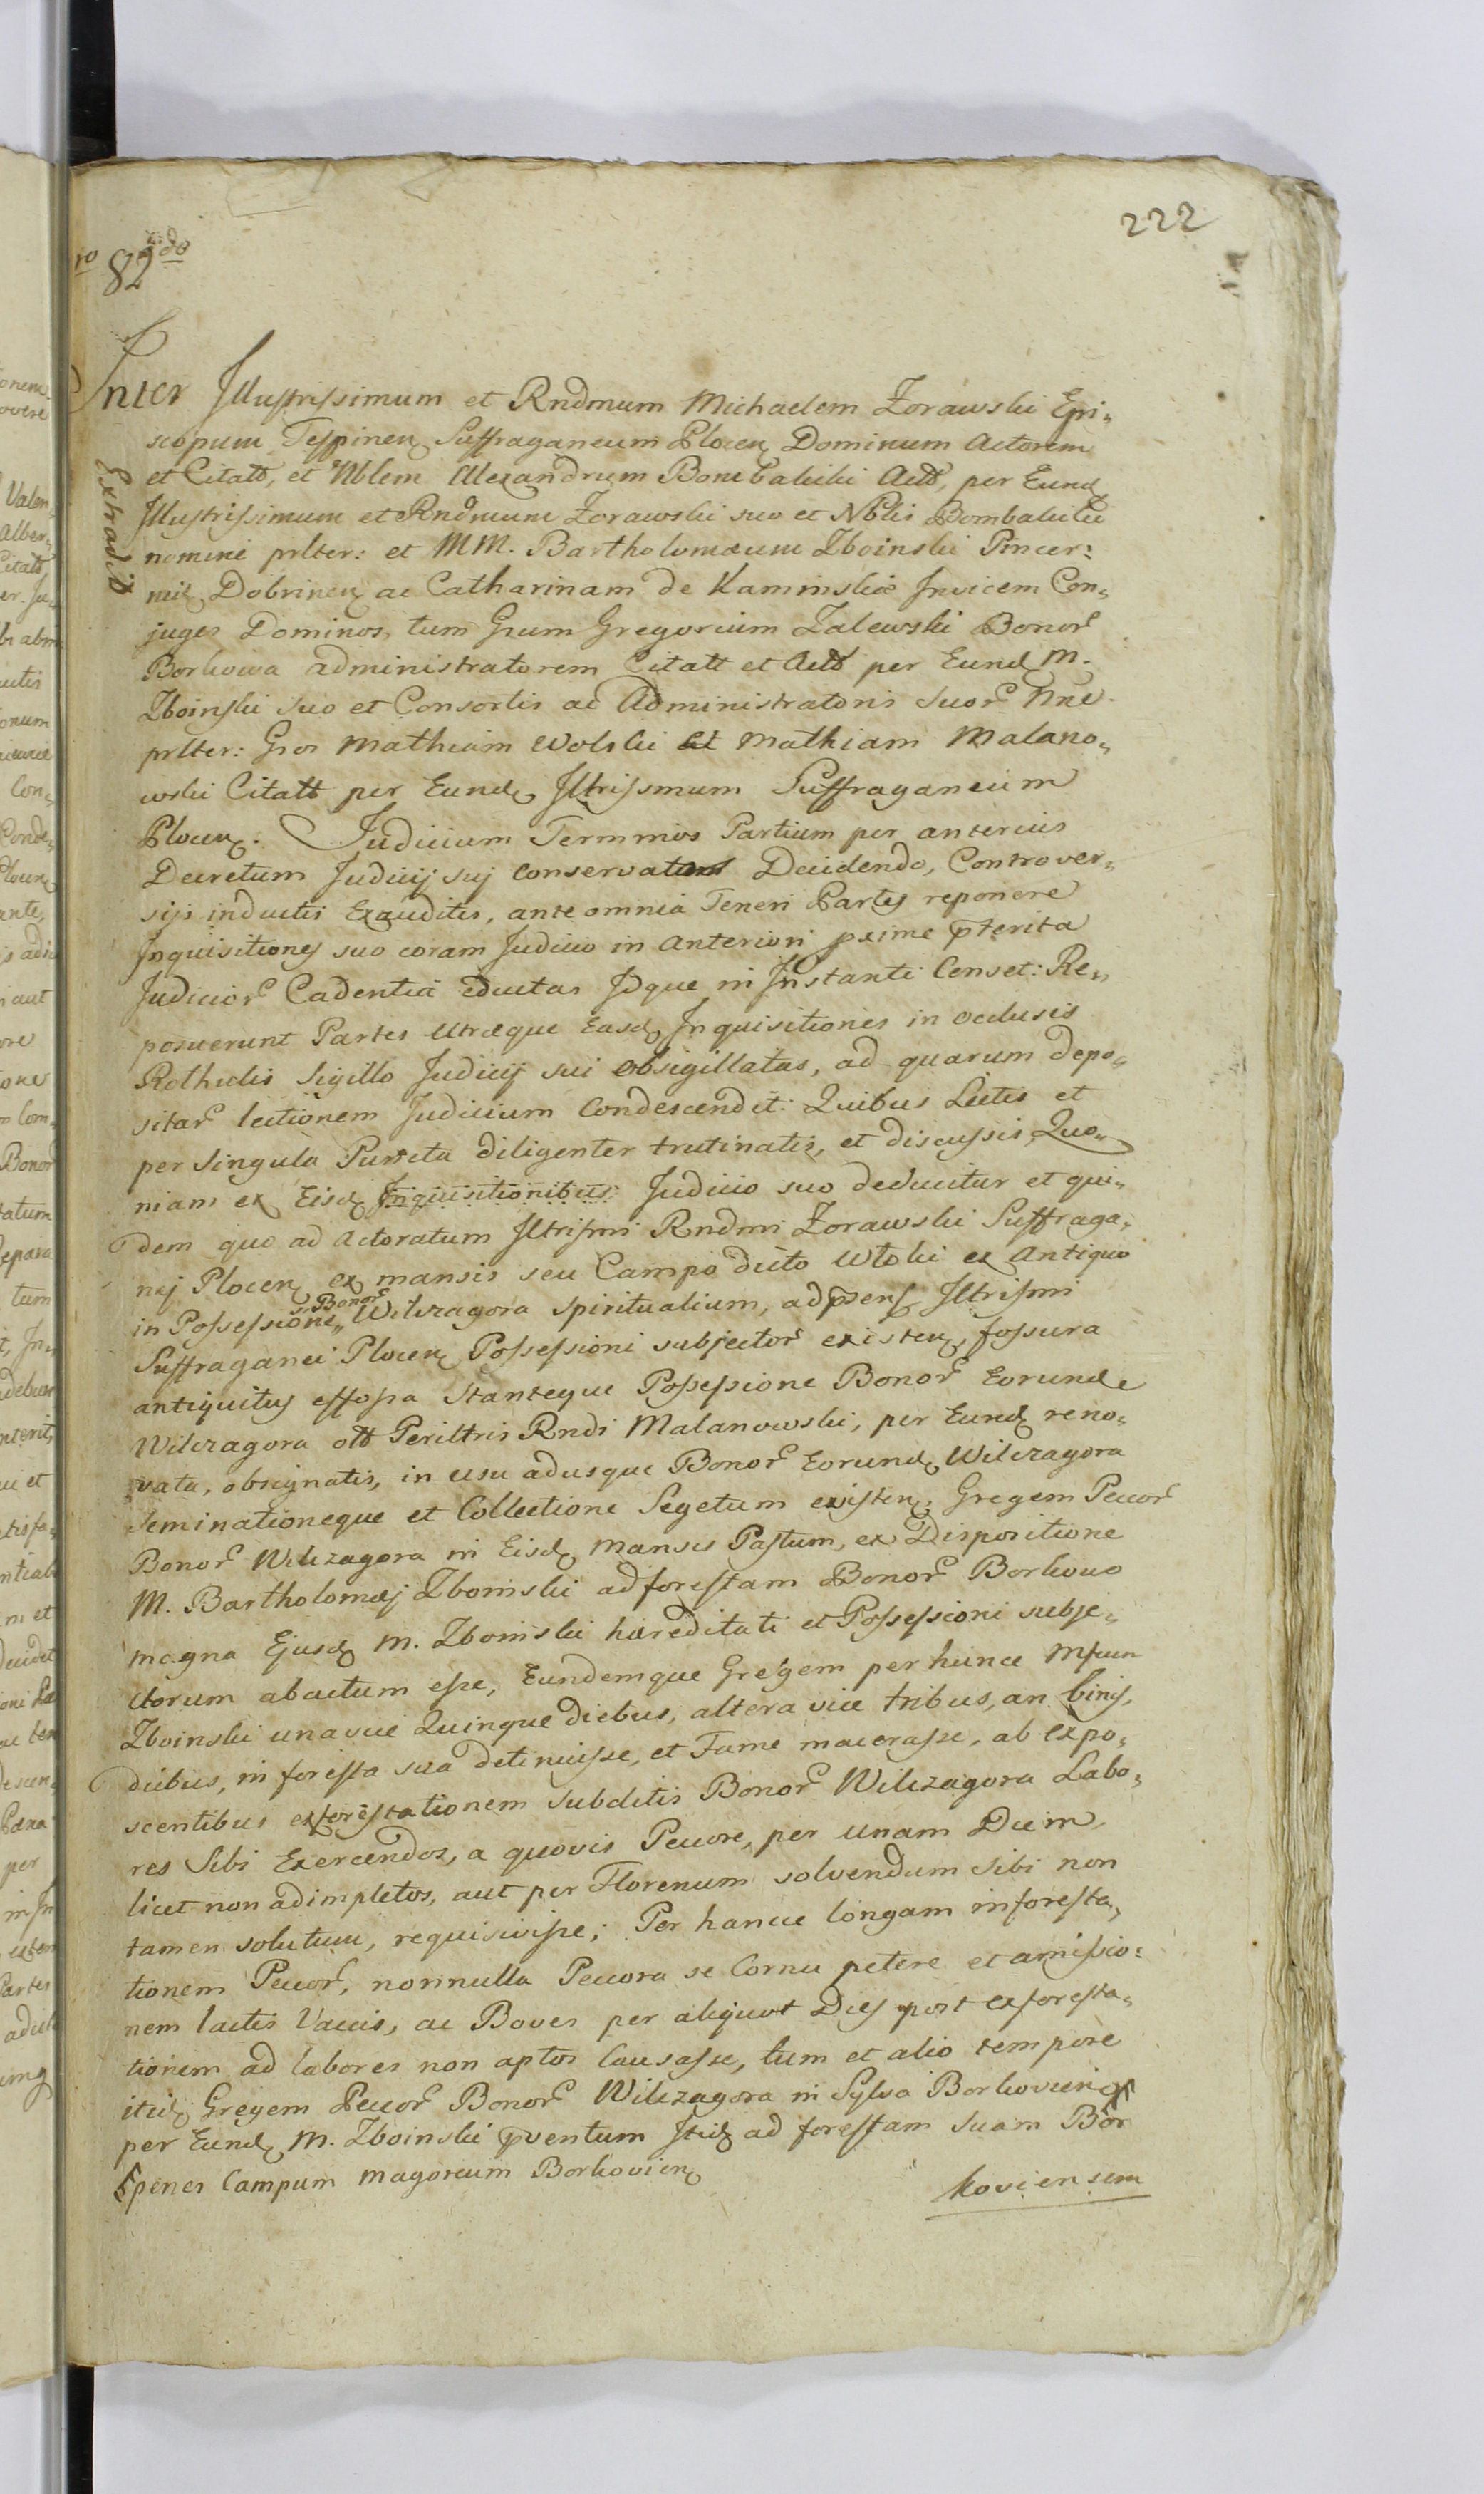 222
82do
Inter Illustrissimum et Rndmum Michaelem Zorawski Epi-
scopum Tespinen Suffraganeum Plocen Dominum Actorem
et Citatt, et Nblem Alexandrum Bombalicki Actt, per Eund
Extradit
Illustrissimum et Rndmum Zorawski suo et Nblis Bombalicki
nomine prlter: et MM. Bartholomæum Zboinski Pincer-
nid Dobrinen ac Catharinam de Kaminskie Invicem Con-
juges Dominos, tum Grum Gregorium Zalewski Bonor
Borkowa administratorem Citatt et Actt per Eund M.
Zboinski suo et Consortis ac Administratoris suor nne
prlter: Gros Mathiam Wolski et Mathiam Malano-
wski Citatt per Eund Iltrissmum Suffraganeum
Plocen. Judicium Terminos Partium per anterius
Decretum Judicij sui conservatum Decidendo, Controver-
sijs inductis Exauditis, ante omnia Teneri Partes reponere
Inquisitiones suo coram Judicio in anteriori pxime pterita
Judicior Cadentia eductas Idque in Instanti Censet: Re-
posuerunt Partes Utræque Easd Inquisitiones in occlusis
Rothulis Sigillo Judicij sui obsigillatas, ad quarum depo-
sitar lectionem Judicium Condescendit: Quibus Lectis et
per Singula Puncta diligenter trutinatis, et discussis, Quo-
niam ex Eisd Inquisitionibus Judicio suo deducitur et qui-
dem quo ad Actoratum Iltrismi Rndmi Zorawski Suffraga-
nej Plocen ex mansis seu Campo dicto Wloki ex Antiquo
in Possessione Bonor Wilczagora spiritualium, ad psens Iltrismi
Suffraganei Plocen Possessioni subjector existen, fossura
antiquitus effossa stanteque Possessione Bonor Eorunde
Wilczagora ott Periltris Rndi Malanowski, per Eund reno-
vata, obsignatis, in usu adusque Bonor Eorund Wilczagora
Seminationeque et Collectione Segetum existen. Gregem Pecor
Bonor Wilczagora in Eisd Mansis Pastum, ex Dispositione
M. Bartholomæj Zboinski ad forestam Bonor Borkowo
magna Ejusd M. Zboinski hæreditati et Possessioni subje-
ctorum abactum esse, Eundemque Gregem per hunce Mfcum
Zboinski una vice Quinque diebus, altera vice tribus, an binis,
diebus, in foresta sua detinuisse, et Fame macerasse, ab expo-
scentibus exforestationem subditis Bonor Wilczagora Labo-
res Sibi Exercendos, a quovis Pecore, per unam Diem,
licet non adimpletos, aut per Florenum solvendum sibi non
tamen solutum, requisivisse; Per hance longam inforesta-
tionem Pecor, nonnulla Pecora se Cornu petere et amissio-
nem lactis Vaccis, ac Boves per aliquot Dies post exforesta-
tionem ad labores non aptos Causasse, tum et alio tempore
itid Gregem Pecor Bonor Wilczagora in Sylva Borkovien
per Eund M. Zboinski pventum Itid ad forestam suam Bor
penes Campum magoreum Borkovien
koviensem